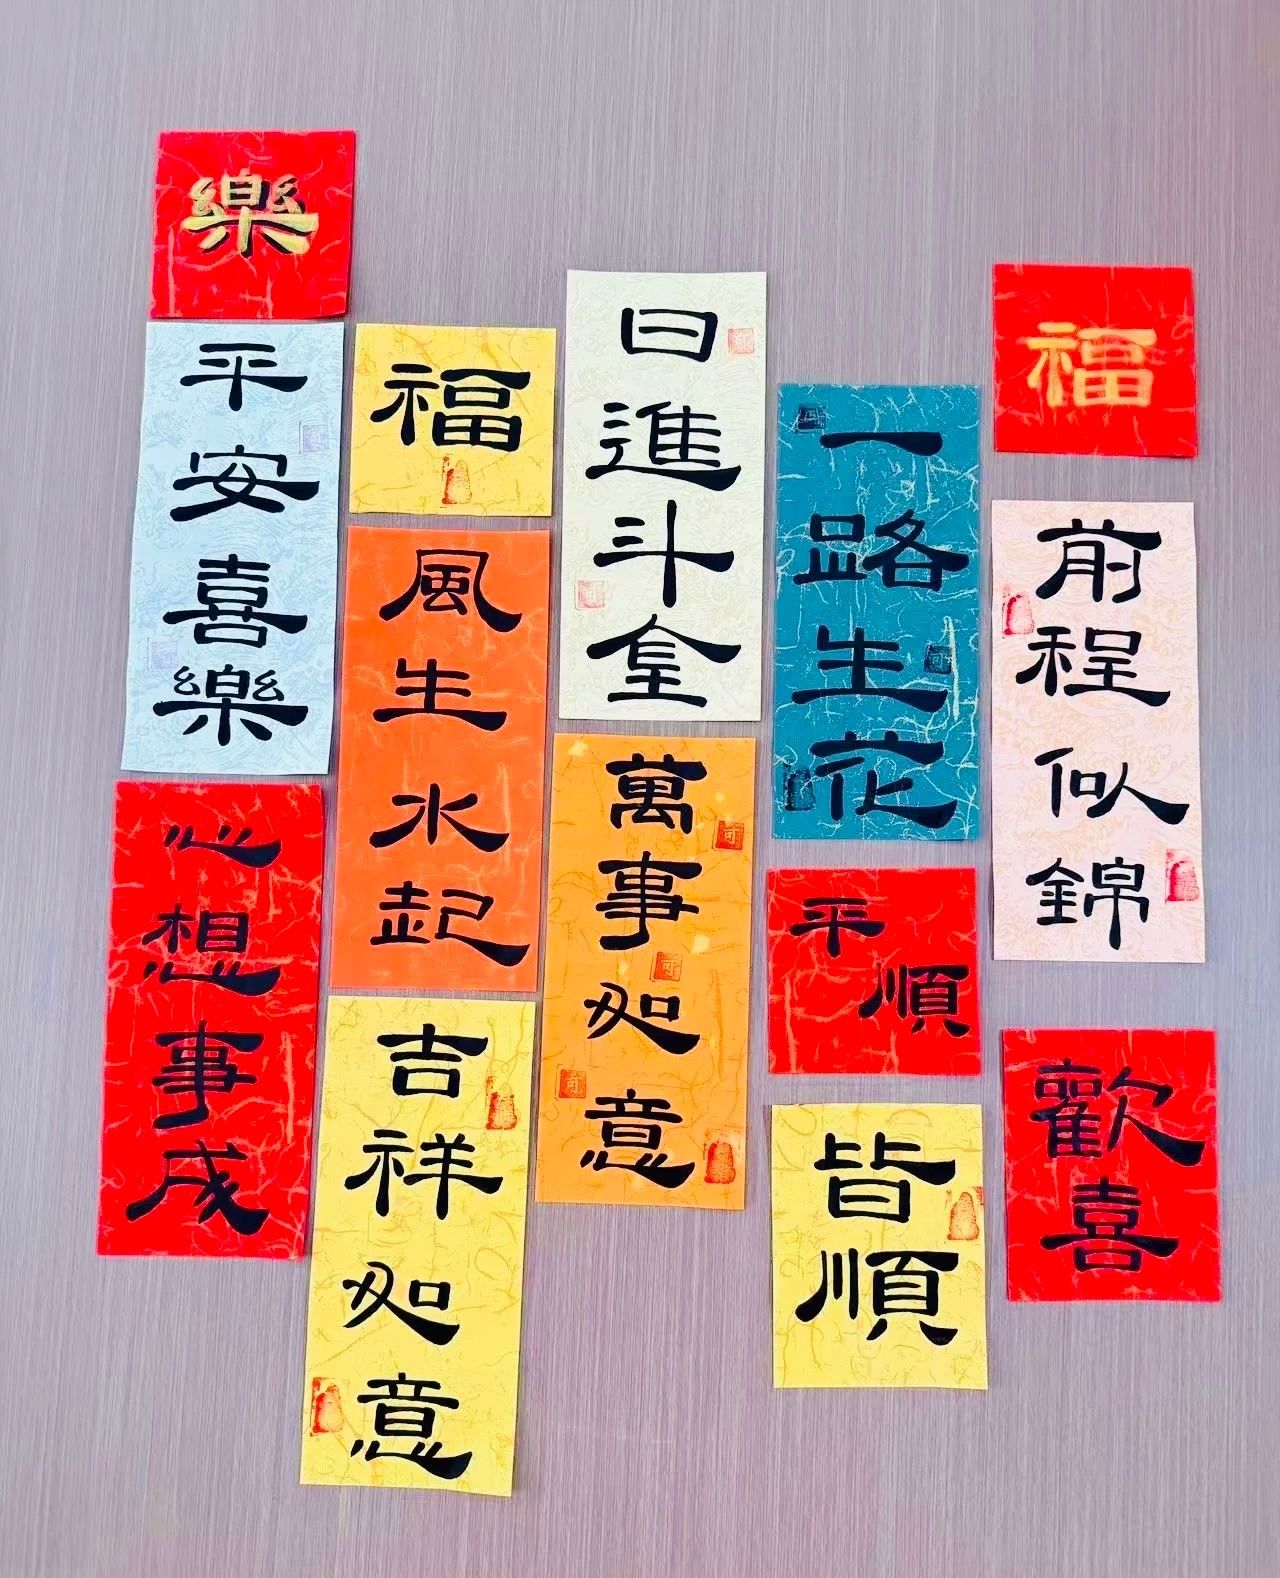 樂
平安喜樂
心想事成
福
風生水起
吉祥如意
日進斗金
萬事如意
一路生花
平順
皆順
福
前程似錦
歡喜